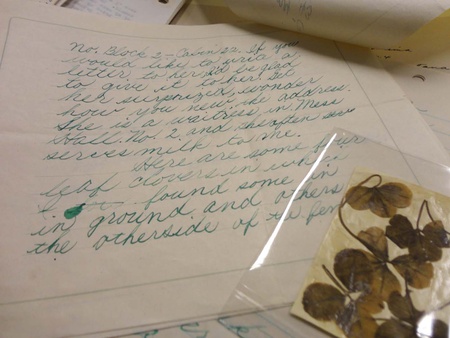 No. Block 2 - Cabin 22. If you
would like to write a
letter to her I'd be glad
to give it to her. Get
her surprized, wonder
how you new the address.
She is a waitress in Mess
Hall No. 2 and she often
serves milk to me.
Here are some four
leaf clovers in
found some in
in ground and others
the otherside of the